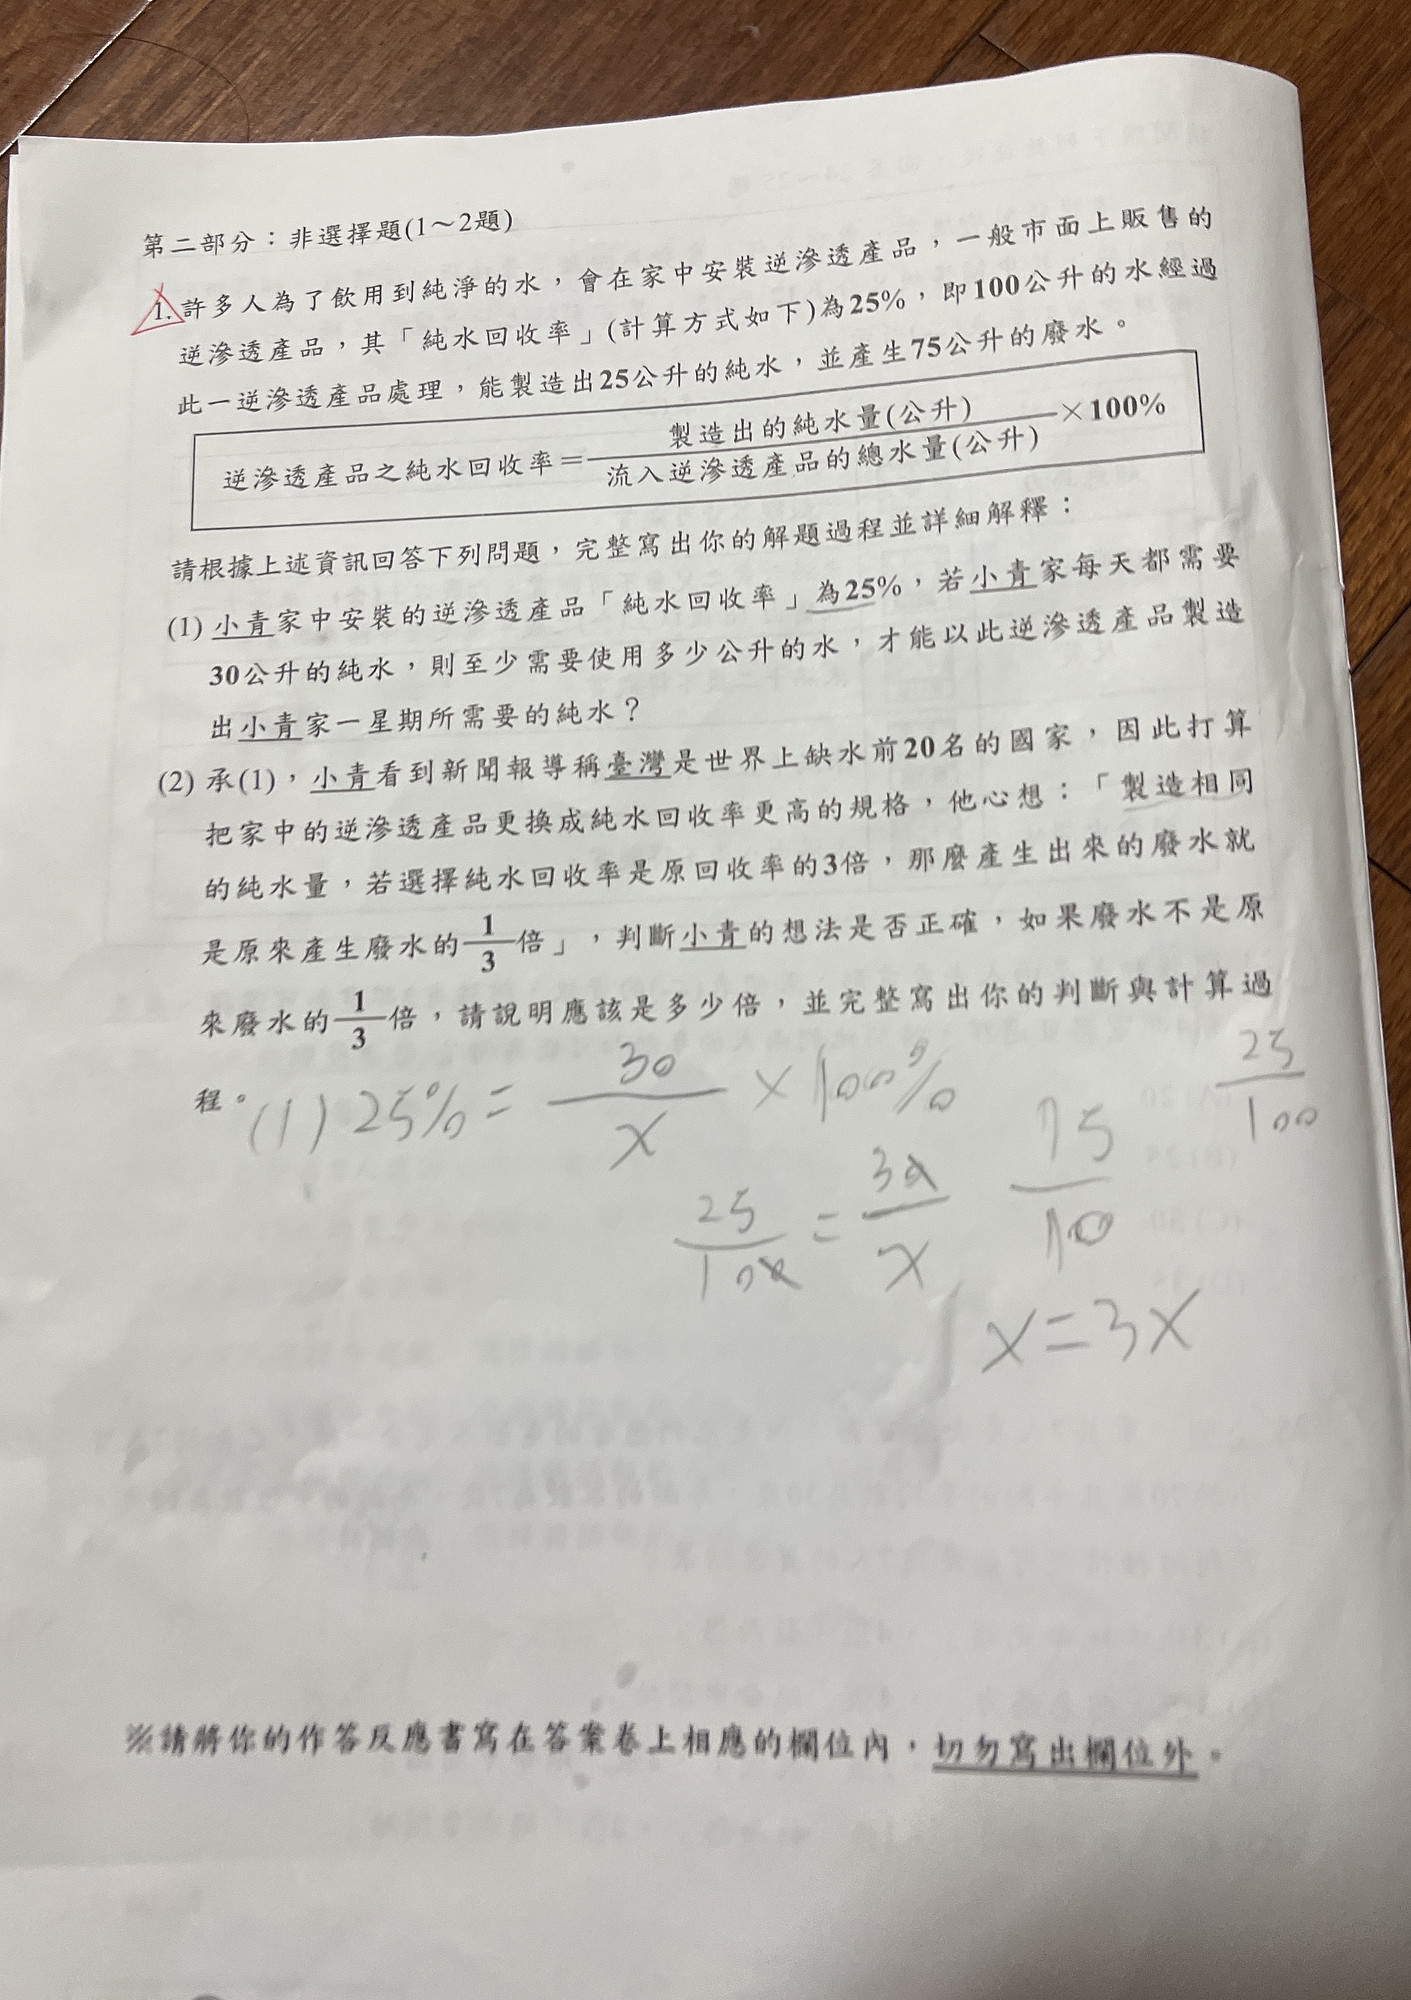 第二部分：非選擇題(1～2題)
1.許多人為了飲用到純淨的水，會在家中安裝逆滲透產品，一般市面上販售的
逆滲透產品，其「純水回收率」(計算方式如下)為25%，即100公升的水經過
此一逆滲透產品處理，能製造出25公升的純水，並產生75公升的廢水。
逆滲透產品之純水回收率＝製造出的純水量(公升)/流入逆滲透產品的總水量(公升)×100%
請根據上述資訊回答下列問題，完整寫出你的解題過程並詳細解釋：
(1) 小青家中安裝的逆滲透產品「純水回收率」為25%，若小青家每天都需要
30公升的純水，則至少需要使用多少公升的水，才能以此逆滲透產品製造
出小青家一星期所需要的純水？
(2) 承(1)，小青看到新聞報導稱臺灣是世界上缺水前20名的國家，因此打算
把家中的逆滲透產品更換成純水回收率更高的規格，他心想：「製造相同
的純水量，若選擇純水回收率是原回收率的3倍，那麼產生出來的廢水就
是原來產生廢水的1/3倍」，判斷小青的想法是否正確，如果廢水不是原
來廢水的1/3倍，請說明應該是多少倍，並完整寫出你的判斷與計算過
程。
(1) 25% = 30/x × 100%
25/100
25/100 = 30/x
x=3x
※請將你的作答反應書寫在答案卷上相應的欄位內，切勿寫出欄位外。